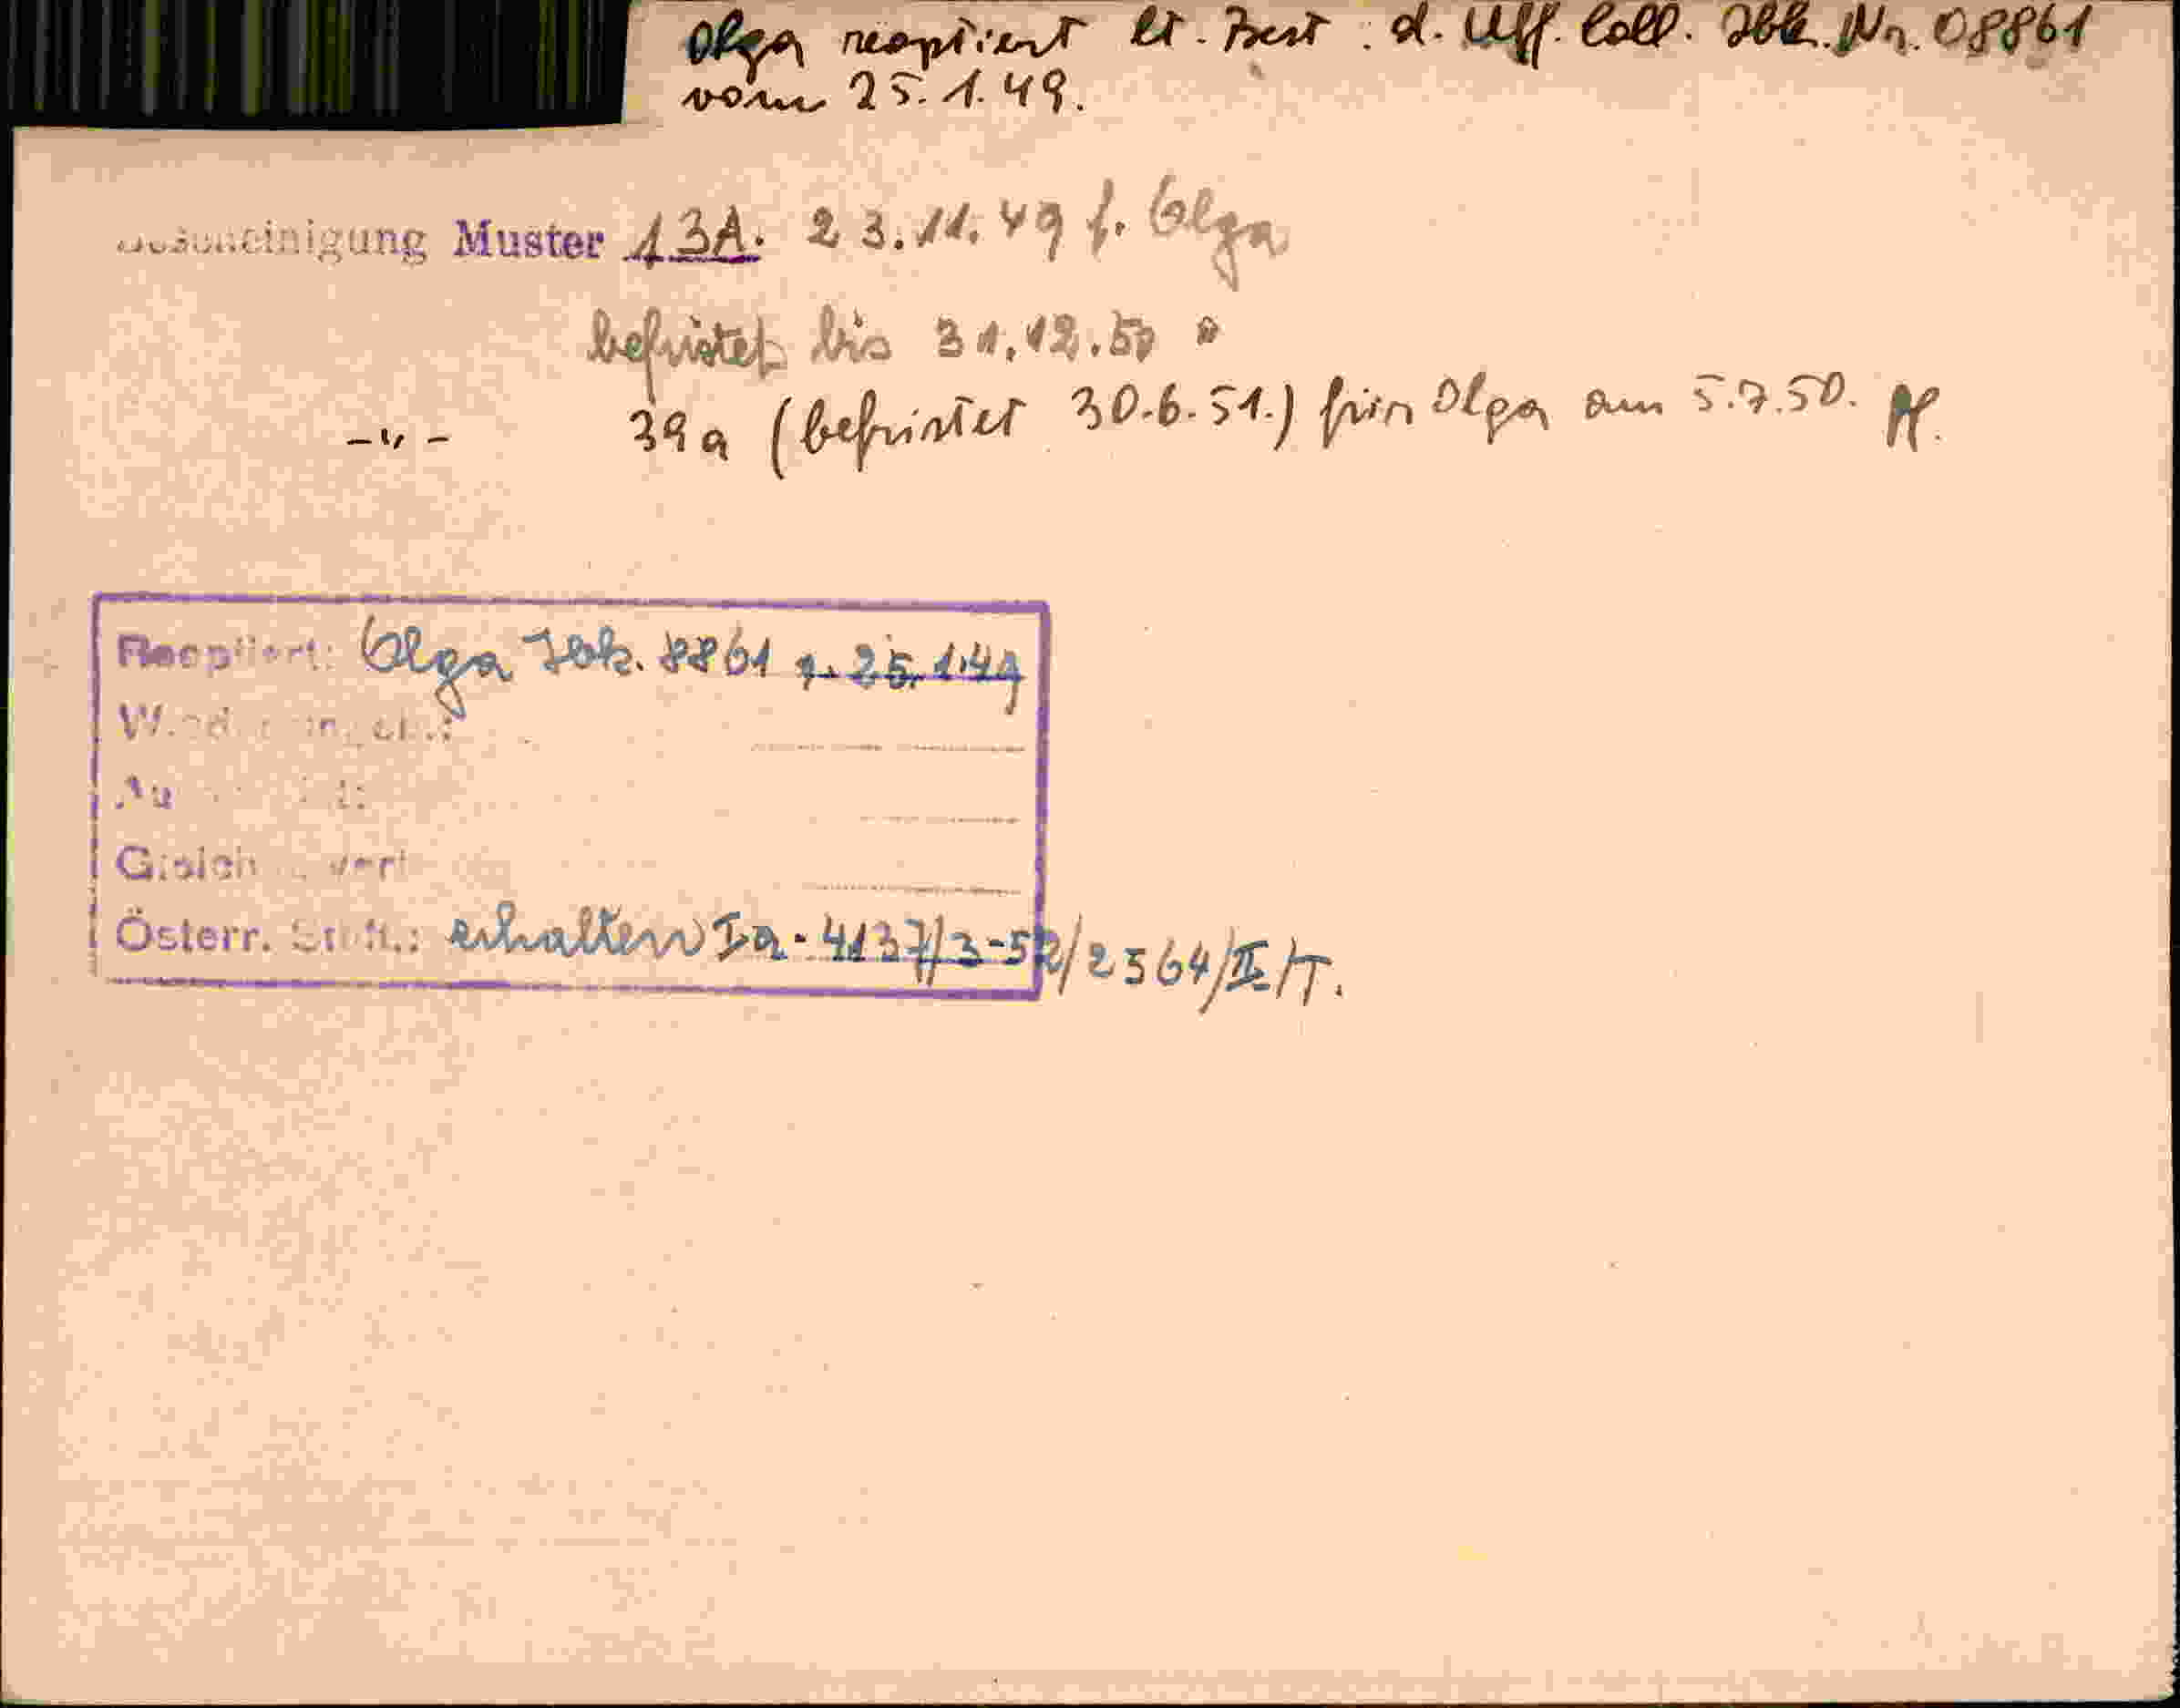 Olga reoptiert lt. Best. d. Uff. Coll. Ibk. Nr. 08861
vom 25.1.49.
Muster 13A. 23.11.49 f. Olga
befristet bis 31.12.50
-"- 39a (befristet 30.6.51.) für Olga am 5.7.50.
Reoptiert: Olga Ibk. 8861 v. 25.1.49
Österr. erhalten Ia-4137/3-52/2564/II/T.